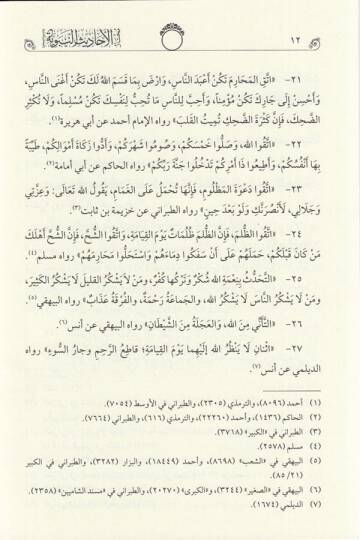 ١٢
الأحاديث النبوية
٢١- «اتَّقِ المَحَارِمَ تَكُنْ أَعْبَدَ النَّاسِ، وَارْضَ بِمَا قَسَمَ اللهُ لَكَ تَكُنْ أَغْنَى النَّاسِ،
وَأَحْسِنْ إِلَى جَارِكَ تَكُنْ مُؤْمِناً، وَأَحِبَّ لِلنَّاسِ مَا تُحِبُّ لِنَفْسِكَ تَكُنْ مُسْلِماً، وَلَا تُكْثِرِ
الضَّحِكَ، فَإِنَّ كَثْرَةَ الضَّحِكِ تُمِيتُ القَلْبَ» رواه الإمام أحمد عن أبي هريرة(١).
٢٢- «اتَّقُوا اللهَ، وَصَلُّوا خَمْسَكُمْ، وَصُومُوا شَهْرَكُمْ، وَأَدُّوا زَكَاةَ أَمْوَالِكُمْ، طَيِّبَةً
بِهَا أَنْفُسُكُمْ، وَأَطِيعُوا ذَا أَمْرِكُمْ تَدْخُلُوا جَنَّةَ رَبِّكُمْ» رواه الحاكم عن أبي أمامة(٢).
٢٣- «اتَّقُوا دَعْوَةَ المَظْلُومِ، فَإِنَّهَا تُحْمَلُ عَلَى الغَمَامِ، يَقُولُ اللهُ تَعَالَى: وَعِزَّتِي
وَجَلَالِي، لَأَنْصُرَنَّكِ وَلَوْ بَعْدَ حِينٍ» رواه الطبراني عن خزيمة بن ثابت(٣).
٢٤- «اتَّقُوا الظُّلْمَ، فَإِنَّ الظُّلْمَ ظُلُمَاتٌ يَوْمَ القِيَامَةِ، وَاتَّقُوا الشُّحَّ، فَإِنَّ الشُّحَّ أَهْلَكَ
مَنْ كَانَ قَبْلَكُمْ، حَمَلَهُمْ عَلَى أَنْ سَفَكُوا دِمَاءَهُمْ وَاسْتَحَلُّوا مَحَارِمَهُمْ» رواه مسلم(٤).
٢٥- «التَّحَدُّثُ بِنِعْمَةِ اللهِ شُكْرٌ وَتَرْكُهَا كُفْرٌ، وَمَنْ لَا يَشْكُرُ القَلِيلَ لَا يَشْكُرُ الكَثِيرَ،
وَمَنْ لَا يَشْكُرُ النَّاسَ لَا يَشْكُرُ اللهَ، وَالجَمَاعَةُ رَحْمَةٌ، وَالفُرْقَةُ عَذَابٌ» رواه البيهقي(٥).
٢٦- «التَّأَنِّي مِنَ اللهِ، وَالعَجَلَةُ مِنَ الشَّيْطَانِ» رواه البيهقي عن أنس(٦).
٢٧- «اثْنَانِ لَا يَنْظُرُ اللهُ إِلَيْهِمَا يَوْمَ القِيَامَةِ؛ قَاطِعُ الرَّحِمِ وَجَارُ السُّوءِ» رواه
الديلمي عن أنس(٧).
(١) أحمد (٨٠٩٦)، والترمذي (٢٣٠٥)، والطبراني في الأوسط (٧٠٥٤).
(٢) الحاكم (١٤٣٦)، وأحمد (٢٢٢٦٠)، والترمذي (٦١٦)، والطبراني (٧٦٦٤).
(٣) الطبراني في «الكبير» (٣٧١٨).
(٤) مسلم (٢٥٧٨).
(٥) البيهقي في «الشعب» (٨٦٩٨)، وأحمد (١٨٤٤٩)، والبزار (٣٢٨٢)، والطبراني في الكبير
(٨٥/٢١).
(٦) البيهقي في «الصغير» (٣٢٤٤)، و«الكبرى» (٢٠٢٧٠)، والطبراني في «مسند الشاميين» (٢٣٥٨).
(٧) الديلمي (١٦٧٤).